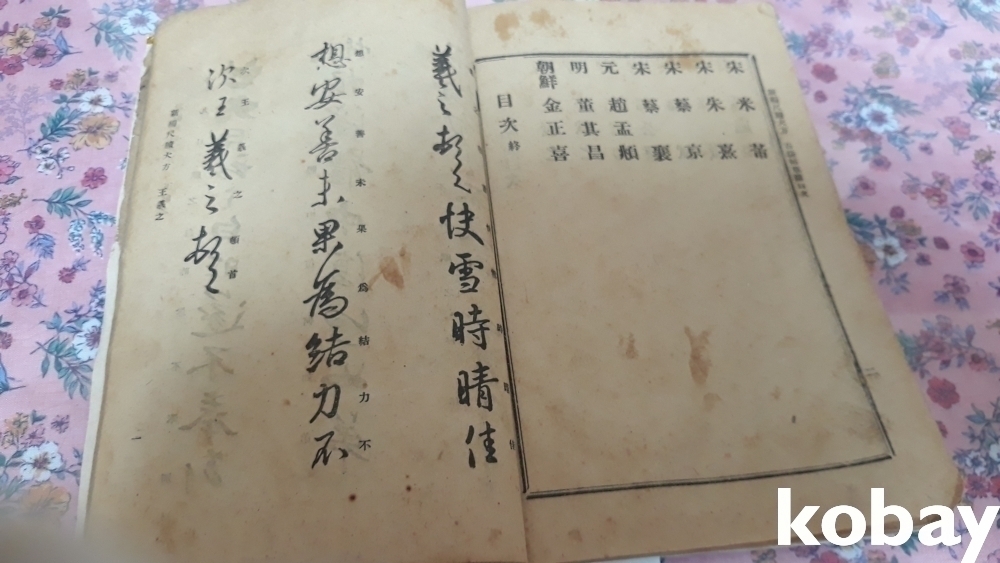 宋 米 芾
宋 朱 熹
宋 蔡 京
宋 蔡 襄
元 趙 孟 頫
明 董 其 昌
朝鮮 金 正 喜
目次 終
羲之頓首快雪時晴佳
想安善未果爲結力不
想安善未果為結力不
次王羲之頓首
次王羲之頓首
尺牘大方 王羲之
一
kobay